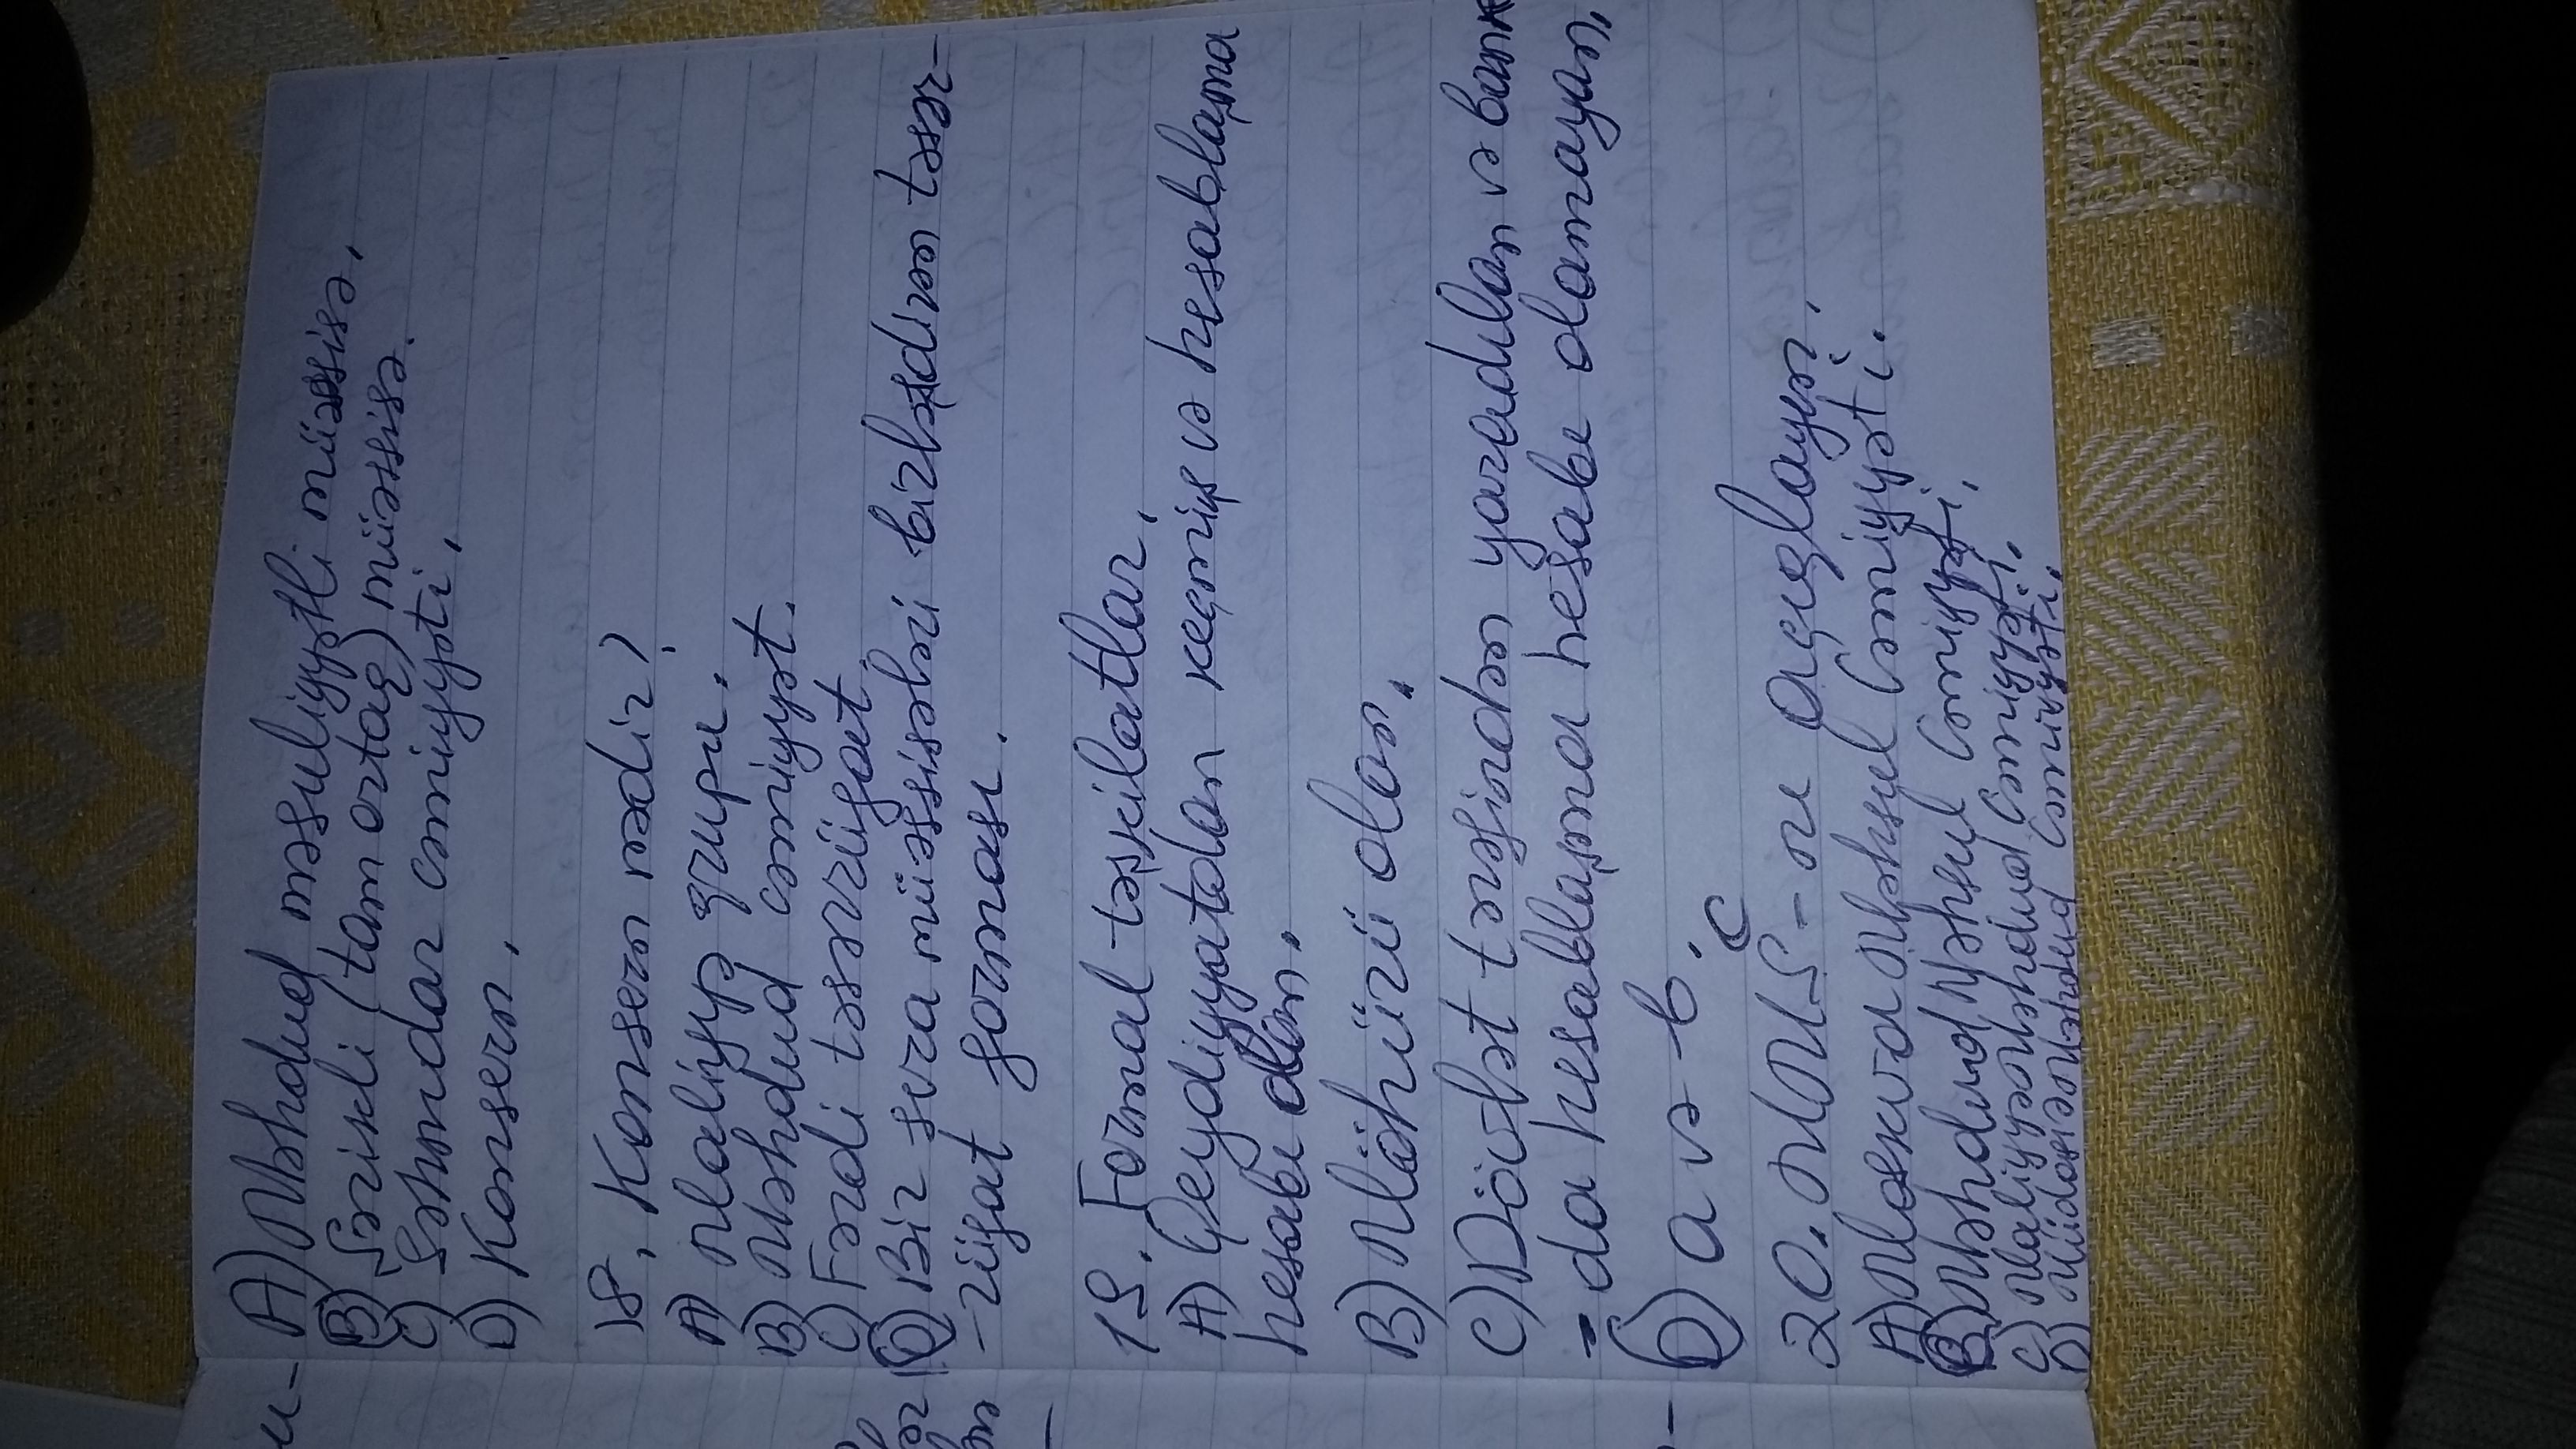 A) Məhdud məsuliyyətli müəssisə,
B) Şərikli (tam ortaq) müəssisə.
C) Səhmdar cəmiyyəti,
D) Konsern.
18. Konsern nədir?
A) Maliyyə qrupu.
B) Məhdud cəmiyyət.
C) Fərdi təsərrüfat.
D) Bir sıra müəssisələri birləşdirən təsər-
-rüfat forması.
19. Formal təşkilatlar.
A) Qeydiyyatdan keçmiş və hesablaşma
hesabı olan.
B) Möhürü olan.
C) Dövlət tərəfindən yaradılan və bank
-da hesablaşma hesabı olamayan,
D) a və b.
C
20. MMS-nı açıqlayın.
A) Moskva Məhsul Cəmiyyəti.
B) Məhdud Məhsul Cəmiyyəti,
C) Maliyyə Məhdud Cəmiyyəti.
D) Məhdud Cəmiyyəti.